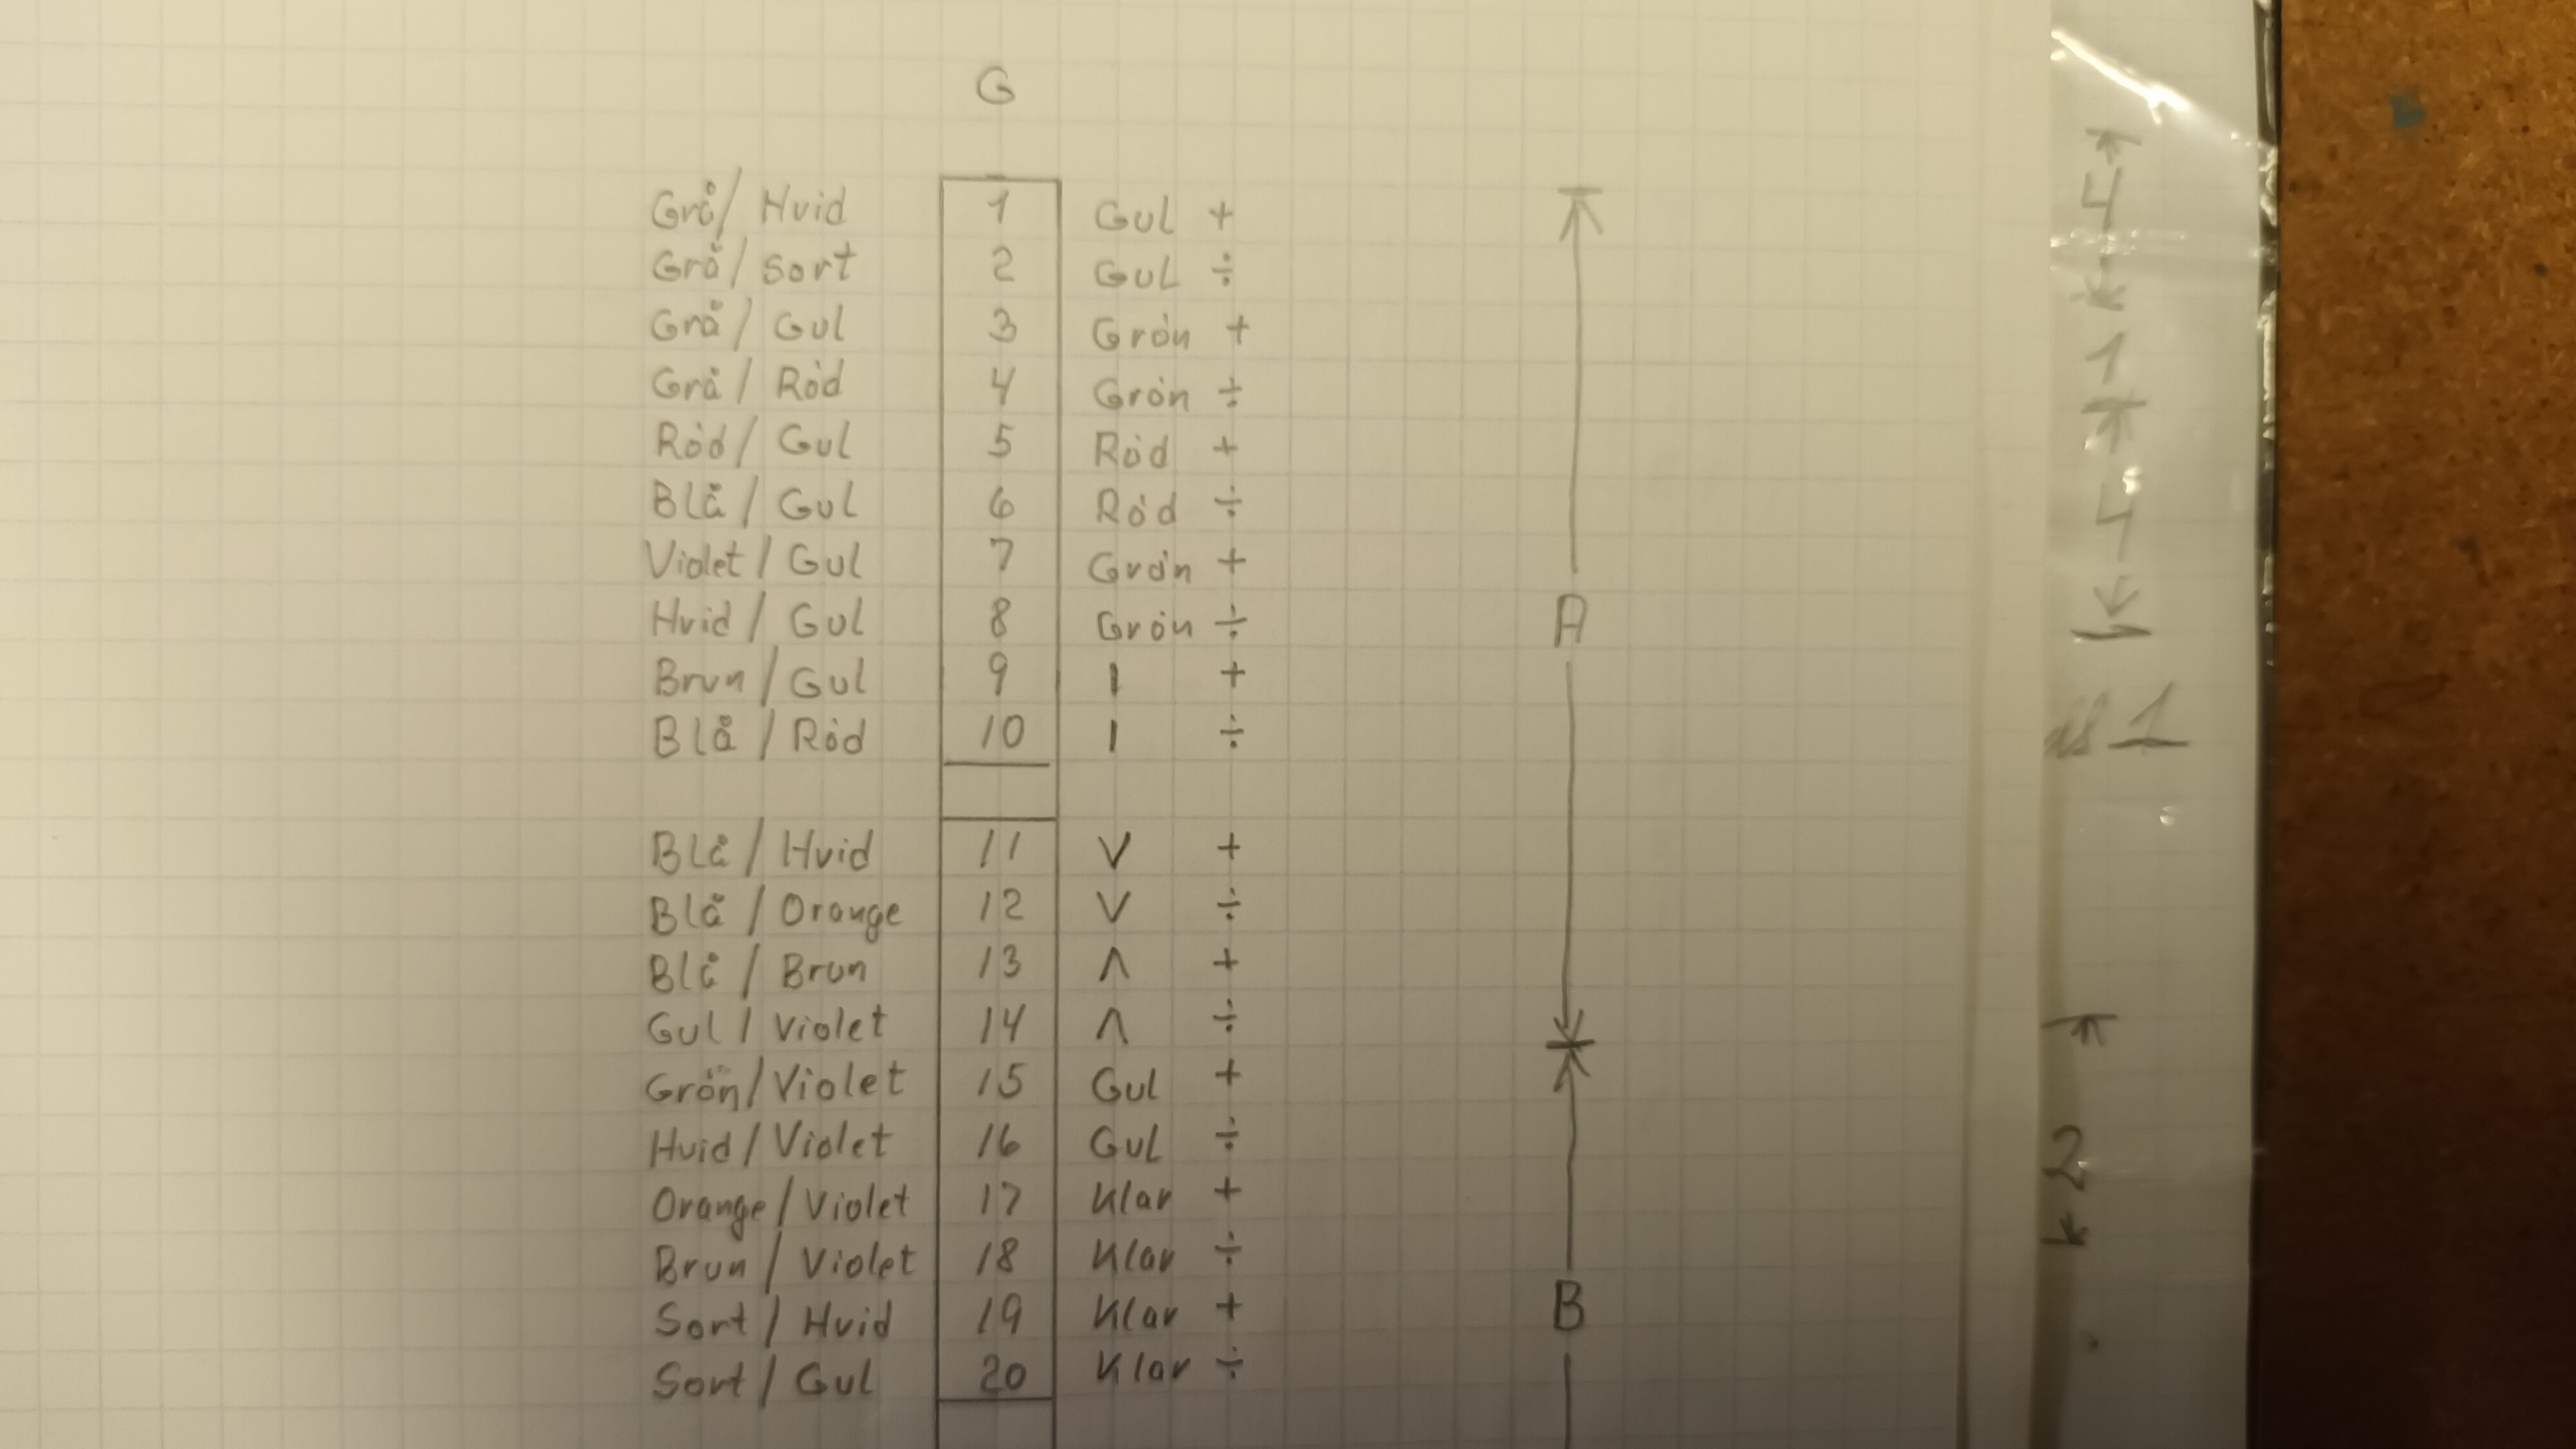 G
Grå/Hvid 1 Gul +
Grå/Sort 2 Gul ÷
Grå/Gul 3 Grön +
Grå/Röd 4 Grön ÷
Röd/Gul 5 Röd +
Blå/Gul 6 Röd ÷
Violet/Gul 7 Grön +
Hvid/Gul 8 Grön ÷
Brun/Gul 9 | +
Blå/Röd 10 | ÷
A
Blå/Hvid 11 V +
Blå/Orange 12 V ÷
Blå/Brun 13 Λ +
Gul/Violet 14 Λ ÷
Grön/Violet 15 Gul +
Hvid/Violet 16 Gul ÷
Orange/Violet 17 Klar +
Brun/Violet 18 Klar ÷
Sort/Hvid 19 Klar +
Sort/Gul 20 Klar ÷
B
4
1
4
1
2